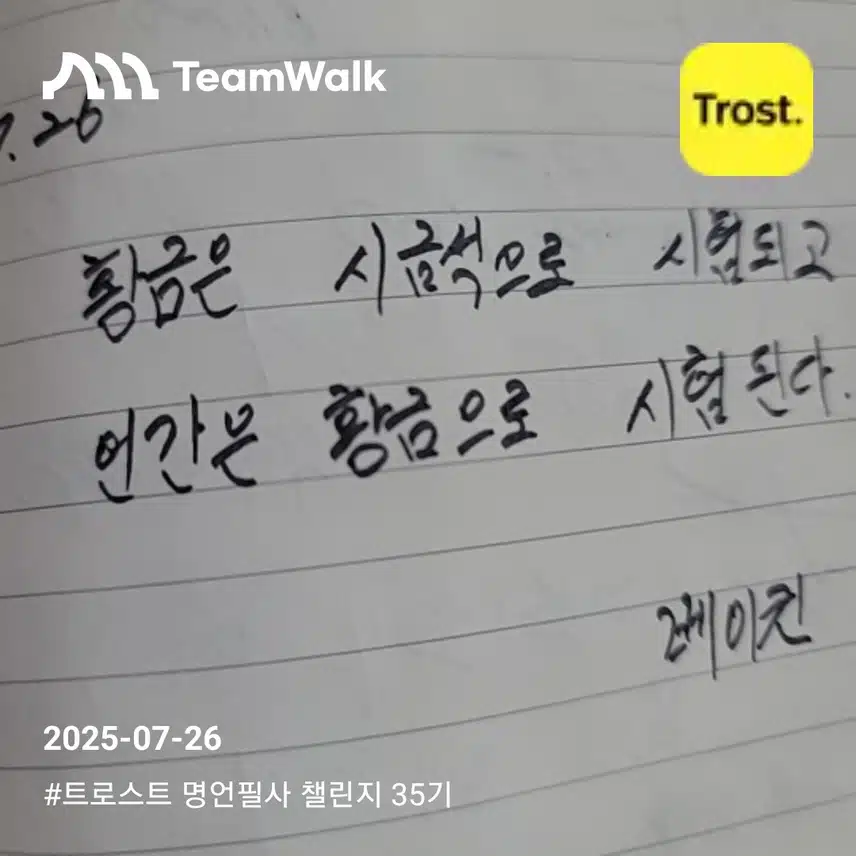 TeamWalk
Trost.
7.26
황금은 시금석으로 시험되고
인간은 황금으로 시험된다.
레이친
2025-07-26
#트로스트 명언필사 챌린지 35기